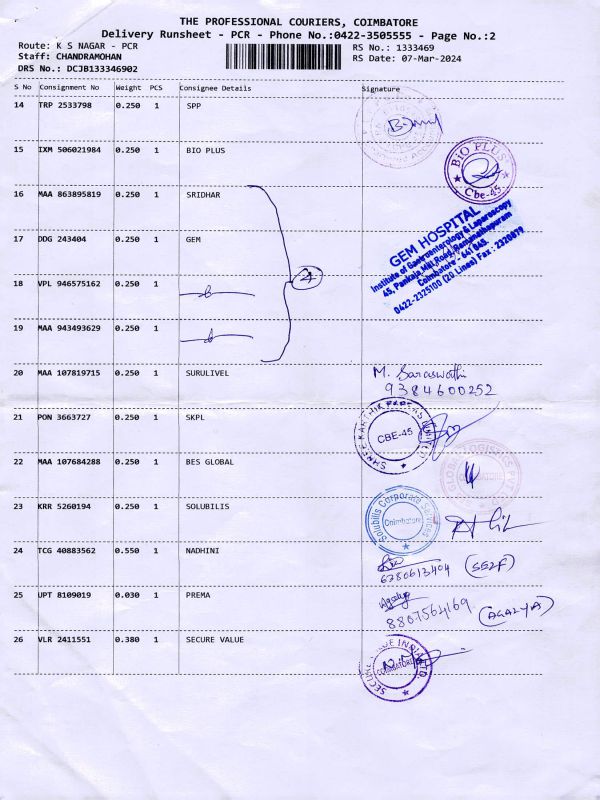 THE PROFESSIONAL COURIERS, COIMBATORE
Delivery Runsheet - PCR - Phone No.:0422-3505555 - Page No.:2
Route: K S NAGAR - PCR RS No.: 1333469
Staff: CHANDRAMOHAN RS Date: 07-Mar-2024
DRS No.: DCJB133346902
S No Consignment No Weight PCS Consignee Details Signature
14 TRP 2533798 0.250 1 SPP
15 IXM 506021984 0.250 1 BIO PLUS
BIO PLUS
Cbe-45
16 MAA 863895819 0.250 1 SRIDHAR
17 DDG 243404 0.250 1 GEM
GEM HOSPITAL
Institute of Gastroenterology & Laparoscopy
45, Pankaja Mill Road, Ramanathapuram
Coimbatore - 641 045.
0422-2325100 (20 Lines) Fax : 2320879
18 VPL 946575162 0.250 1
4
19 MAA 943493629 0.250 1
20 MAA 107819715 0.250 1 SURULIVEL
M. Saraswathi
9384600252
21 PON 3663727 0.250 1 SKPL
CBE-45
22 MAA 107684288 0.250 1 BES GLOBAL
23 KRR 5260194 0.250 1 SOLUBILIS
Solubilis Corporate Services
Coimbatore
24 TCG 40883562 0.550 1 NADHINI
6780613404 (SELF)
25 UPT 8109019 0.030 1 PREMA
8807564169 (AGALYA)
26 VLR 2411551 0.380 1 SECURE VALUE